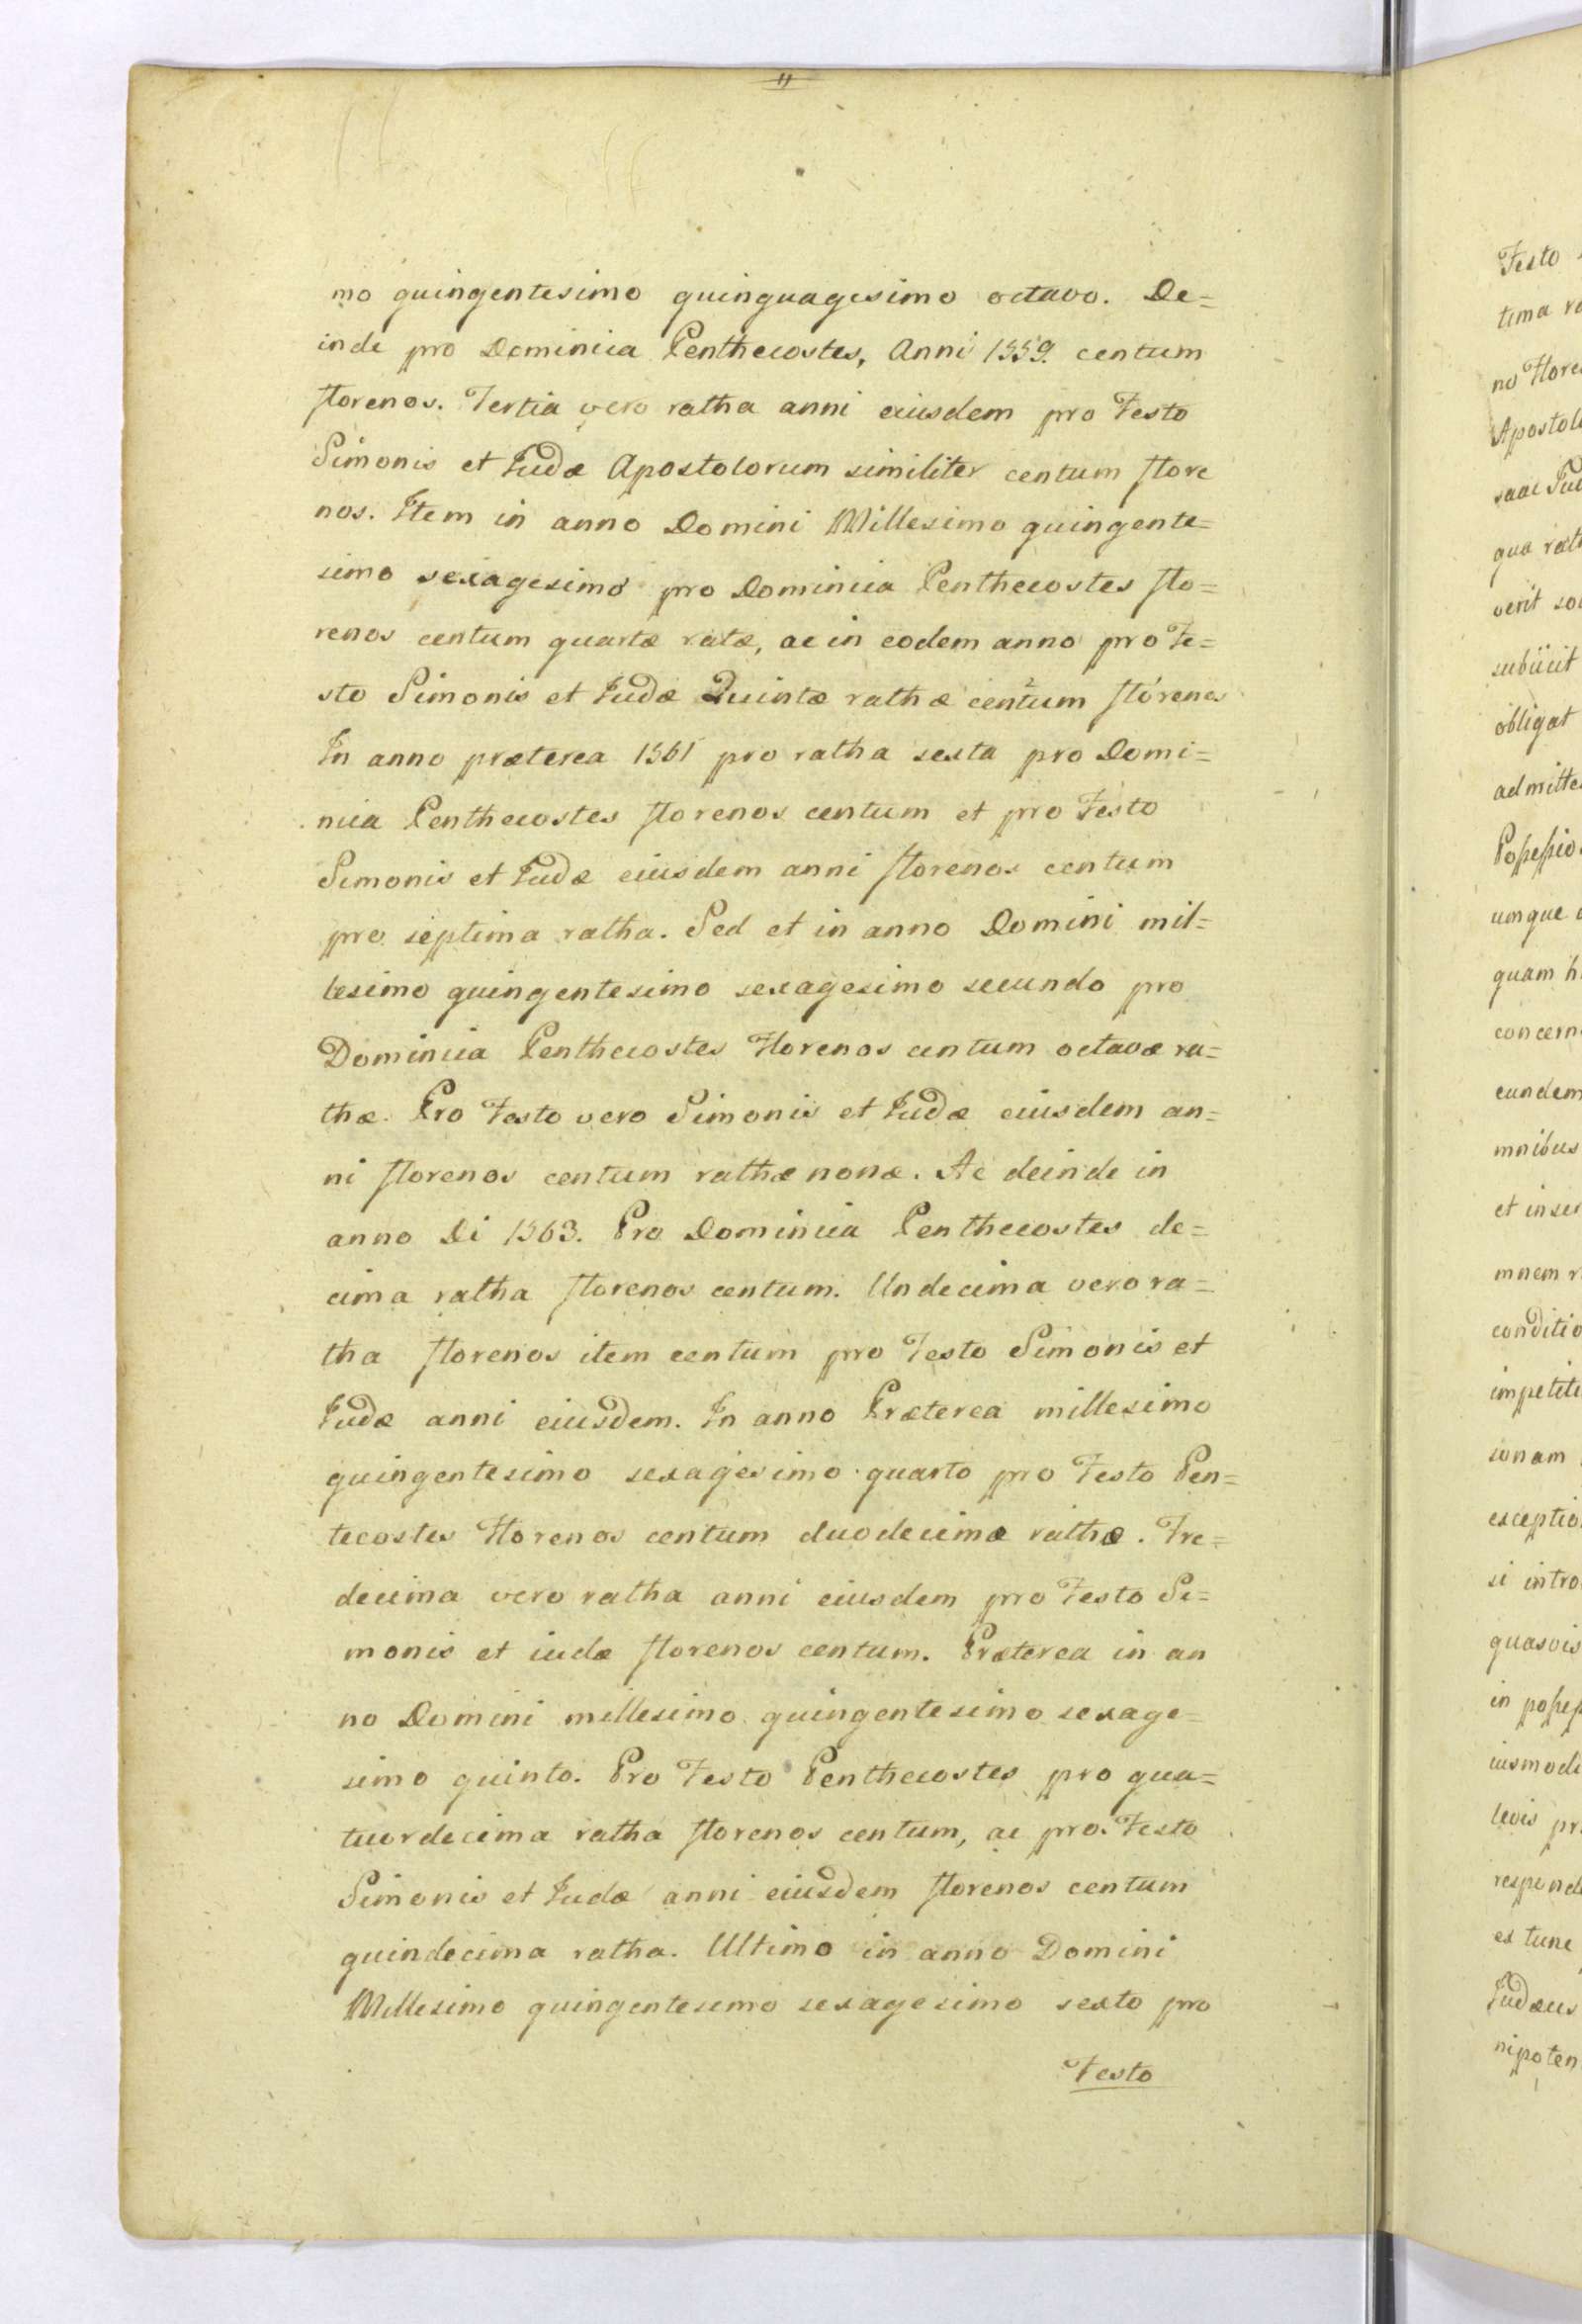 mo quingentesimo quinquagesimo octavo. De=
inde pro Dominica Penthecostes, Anni 1559. centum
florenos. Tertia vero ratha anni eiusdem pro Festo
Simonis et Judæ Apostolorum similiter centum flore
nos. Item in anno Domini Millesimo quingente=
simo sexagesimo pro Dominica Penthecostes flo=
renos centum quartæ ratæ, ac in eodem anno pro Fe=
sto Simonis et Judæ Quintæ rathæ centum florenos
In anno præterea 1561 pro ratha sexta pro Domi=
nica Penthecostes florenos centum et pro Festo
Simonis et Judæ eiusdem anni florenos centum
pro septima ratha. Sed et in anno Domini mil=
lesimo quingentesimo sexagesimo secundo pro
Dominica Penthecostes Florenos centum octavæ ra=
thæ. Pro Festo vero Simonis et Judæ eiusdem an=
ni florenos centum rathæ nonæ. Ac deinde in
anno Di 1563. Pro Dominica Penthecostes de=
cima ratha florenos centum. Undecima vero ra=
tha florenos item centum pro Festo Simonis et
Judæ anni eiusdem. In anno Præterea millesimo
quingentesimo sexagesimo quarto pro Festo Pen=
tecostes Florenos centum duodecimæ rathæ. Tre=
decima vero ratha anni eiusdem pro Festo Si=
monis et iudæ florenos centum. Præterea in an
no Domini millesimo quingentesimo sexage=
simo quinto. Pro Festo Penthecostes pro qua=
tuordecima ratha florenos centum, ac pro Festo
Simonis et Judæ anni eiusdem florenos centum
quindecima ratha. Ultimo in anno Domini
Millesimo quingentesimo sexagesimo sexto pro
Festo
Festo
tima
no
saac
verit
subiicit
obligat
umque
quam
eundem
mnibus
mnem
conditio
sonam
si intro
quasvis
iusmodi
ex tunc
Judæus
nipoten